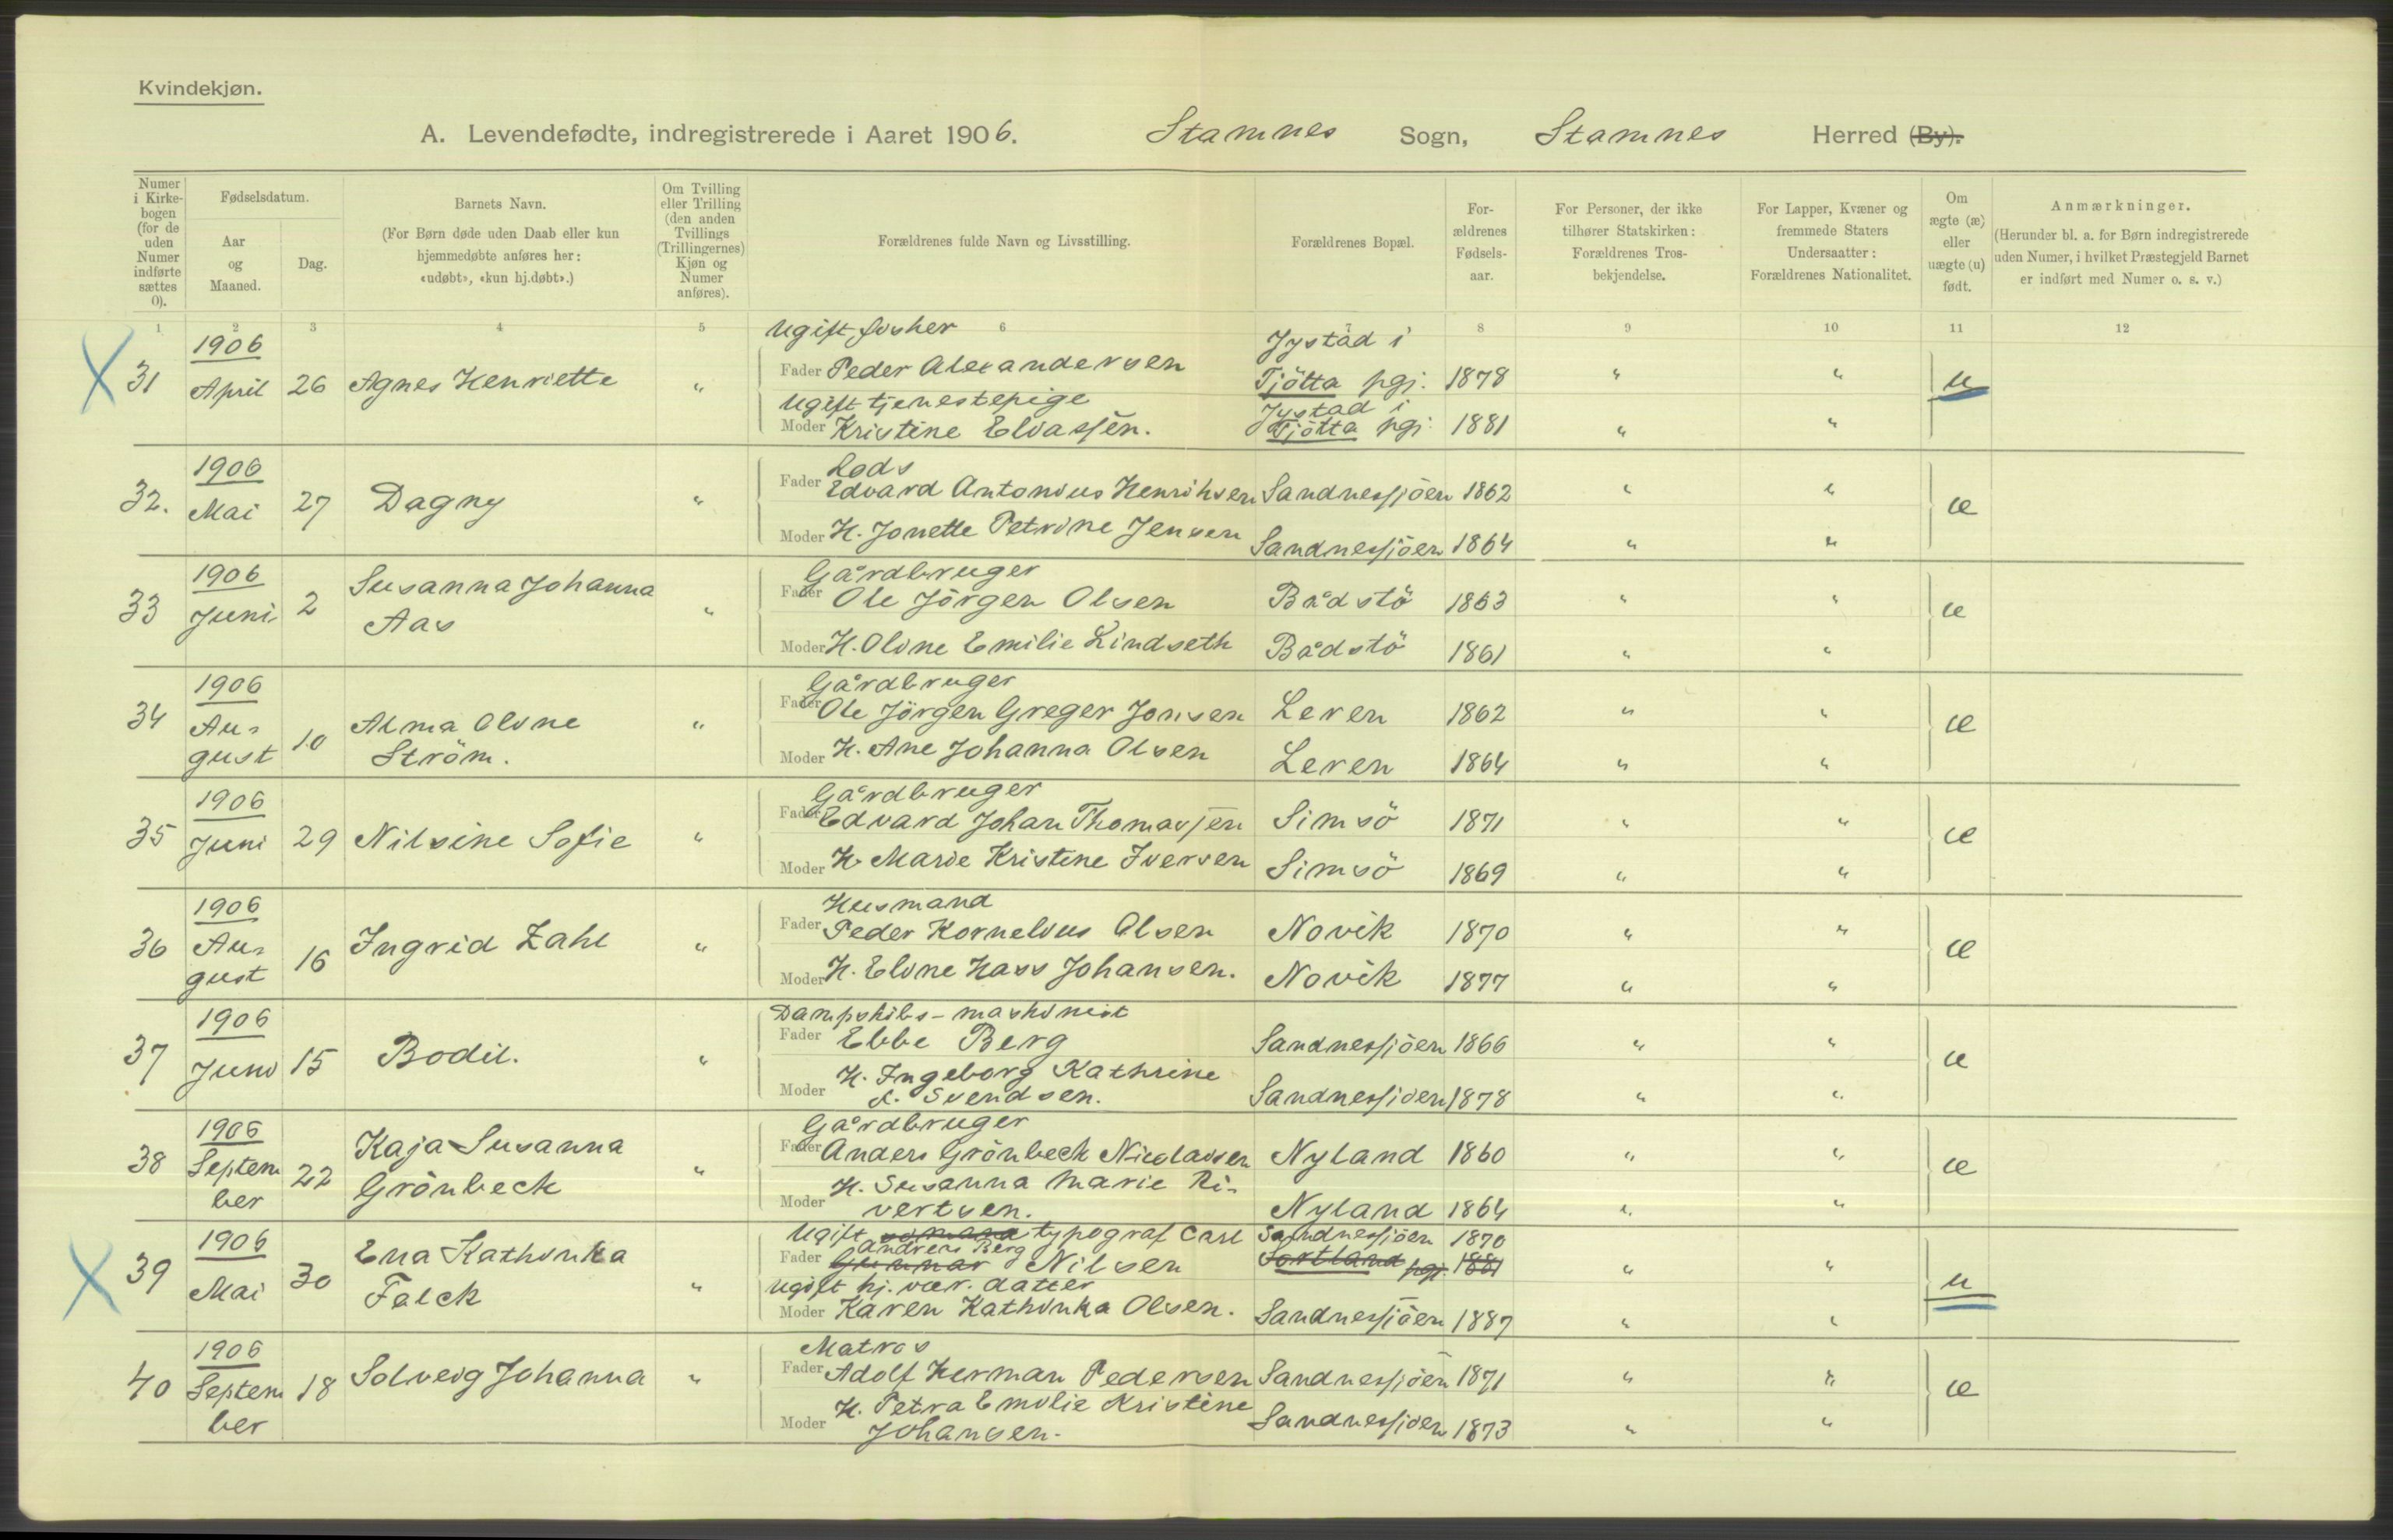 Kvindekjøn.
A. Levendefødte, indregistrerede i Aaret 1906. Stamnes Sogn, Stamnes Herred (By).
Numer i Kirkebogen (for de uden Numer indførte sættes 0).
Fødselsdatum.
Aar og Maaned.
Dag.
Barnets Navn.
(For Børn døde uden Daab eller kun hjemmedøbte anføres her: «udøbt», «kun hj.døbt».)
Om Tvilling eller Trilling (den anden Tvillings (Trillingernes) Kjøn og Numer anføres).
Forældrenes fulde Navn og Livsstilling.
Forældrenes Bopæl.
Forældrenes Fødselsaar.
For Personer, der ikke tilhører Statskirken: Forældrenes Trosbekjendelse.
For Lapper, Kvæner og fremmede Staters Undersaatter: Forældrenes Nationalitet.
Om ægte (æ) eller uægte (u) født.
Anmærkninger.
(Herunder bl. a. for Børn indregistrerede uden Numer, i hvilket Præstegjeld Barnet er indført med Numer o. s. v.)
1 2 3 4 5 6 7 8 9 10 11 12
31 1906 April 26 Agnes Henriette "
Ugift fisker
Fader Peder Alexandersen Jystad i Tjötta pgj. 1878 " " u
Ugift tjenestepige
Moder Kristine Eliassen. Jystad i Tjötta pgj. 1881 " "
32. 1906 Mai 27 Dagny "
Lods
Fader Edvard Antonius Henriksen Sandnessjöen 1862 " " æ
Moder H. Jonette Petrine Jensen Sandnessjöen 1864 " "
33 1906 Juni 2 Susanna Johanna Aas "
Gårdbruger
Fader Ole Jörgen Olsen Bådstö 1863 " " æ
Moder H. Oline Emilie Lindseth Bådstö 1861 " "
34 1906 August 10 Alma Oline Ström. "
Gårdbruger
Fader Ole Jörgen Greger Jonsen Leren 1862 " " æ
Moder H. Ane Johanna Olsen Leren 1864 " "
35 1906 Juni 29 Nilsine Sofie "
Gårdbruger
Fader Edvard Johan Thomassen Simsö 1871 " " æ
Moder H. Marie Kristine Iversen Simsö 1869 " "
36 1906 August 16 Ingrid Zahl "
Husmand
Fader Peder Kornelius Olsen Novik 1870 " " æ
Moder H. Eline Hass Johansen. Novik 1877 " "
37 1906 Juni 15 Bodil. "
Dampskibs-maskinist
Fader Ebbe Berg Sandnessjöen 1866 " " æ
Moder H. Ingeborg Kathrine
f. Svendsen. Sandnessjöen 1878 " "
38 1906 September 22 Kaja Susanna Grönbeck "
Gårdbruger
Fader Anders Grönbeck Nicolaisen Nyland 1860 " " æ
Moder H. Susanna Marie Rivertsen. Nyland 1864 " "
39 1906 Mai 30 Ena Kathinka Falck "
Ugift sömand typograf Carl Sandnessjöen 1870
Andreas Berg
Fader Gunnar Nilsen Sortland pgj. 1881 " " u
Ugift hj. vær. datter
Moder Karen Kathinka Olsen. Sandnessjöen 1887 " "
40 1906 September 18 Solveig Johanna "
Matros
Fader Adolf Herman Pedersen Sandnessjöen 1871 " " æ
Moder H. Petra Emilie Kristine
Johansen. Sandnessjöen 1873 " "